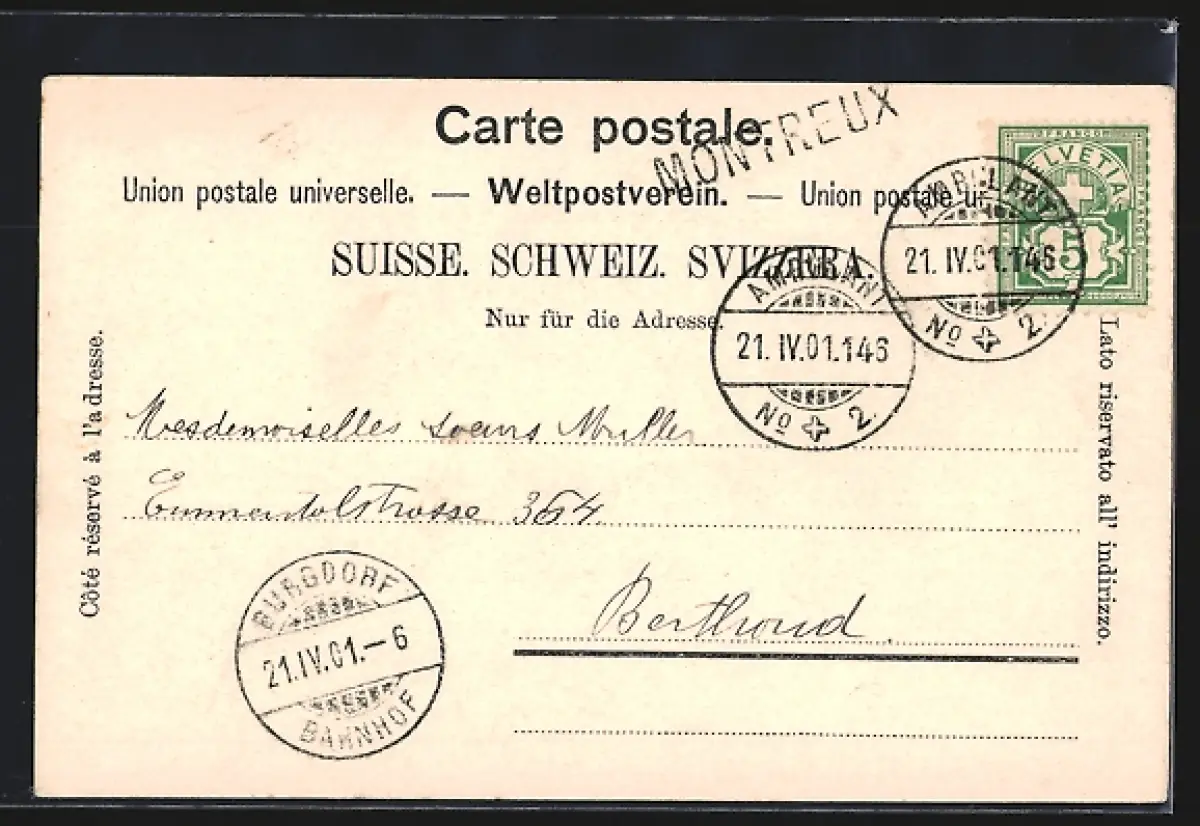 Carte postale.
MONTREUX
Union postale universelle. — Weltpostverein. — Union postale
SUISSE. SCHWEIZ. SVIZZERA.
Nur für die Adresse.
FRANCO
HELVETIA
5
AMBULANT
21. IV. 01. 146
No 2.
AMBULANT
21. IV. 01. 146
No 2.
Côté réservé à l'adresse.
Lato riservato all' indirizzo.
Mesdemoiselles soeurs Muller
Emmentalstrasse 364
Berthoud
BURGDORF
21. IV. 01. — 6
BAHNHOF